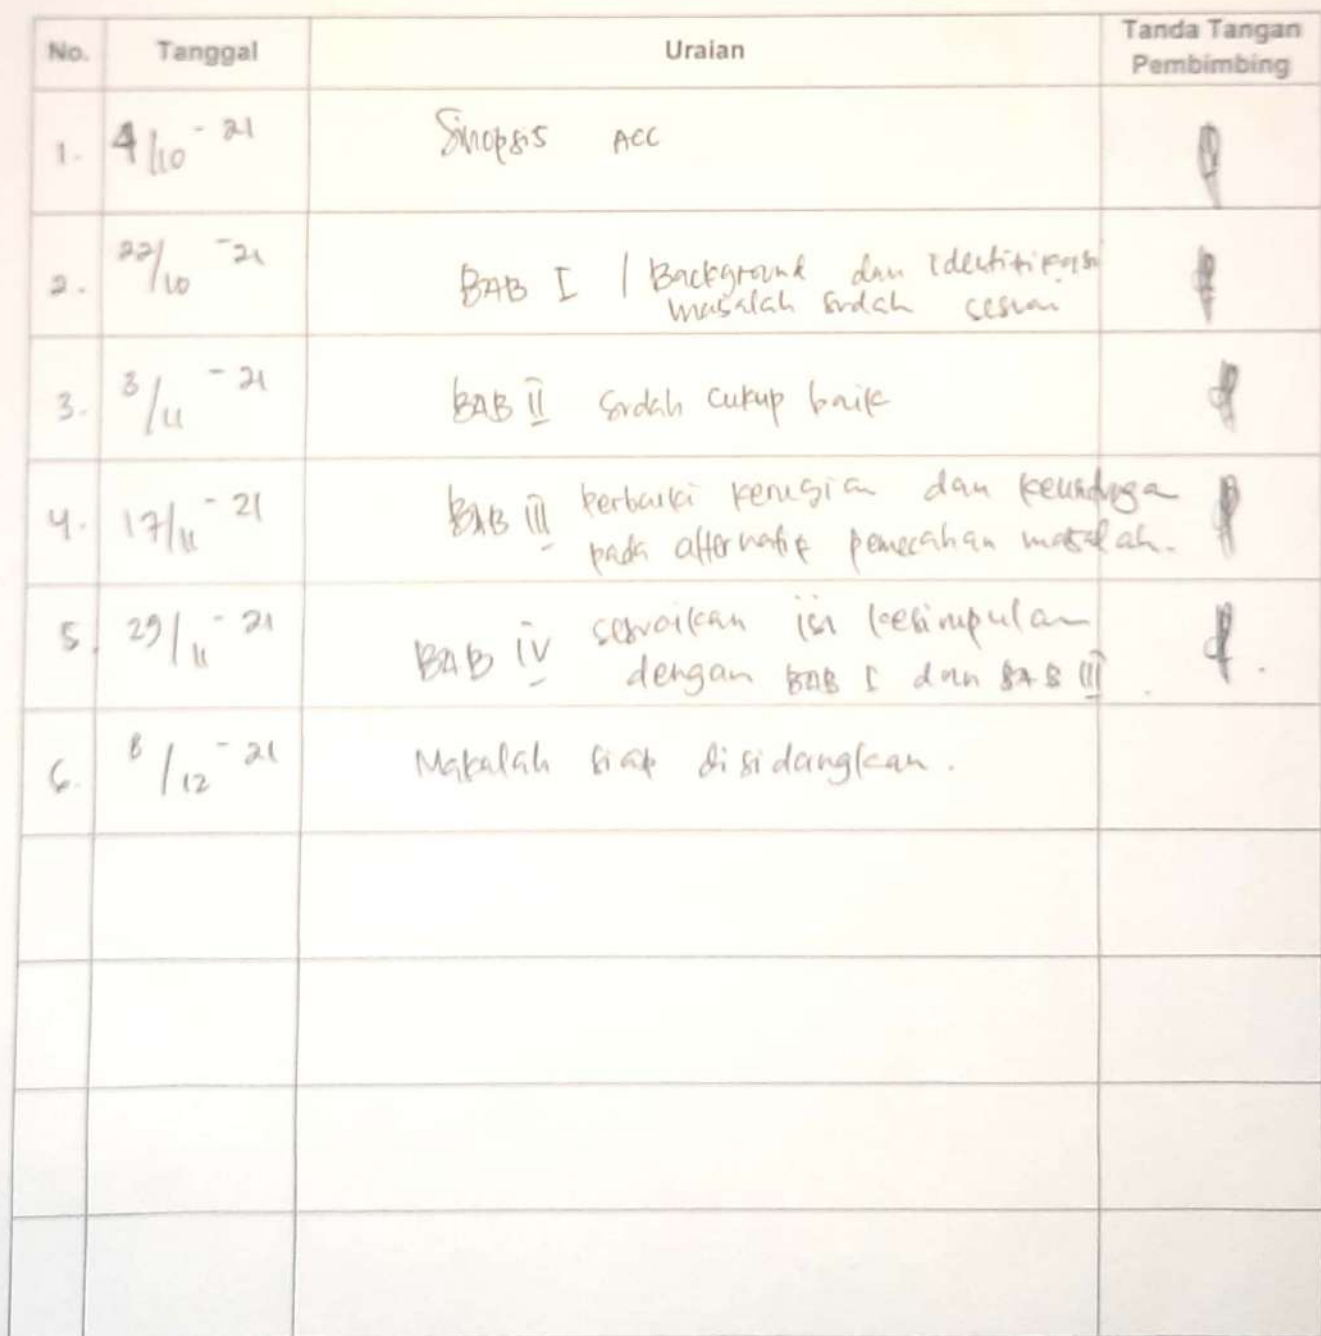 No. Tanggal Uraian Tanda Tangan
Pembimbing
1. 4/10 - 21 Sinopsis ACC
2. 22/10 - 21 BAB I / Background dan identifikasi
masalah sudah sesuai
3. 3/11 - 21 BAB II sudah cukup baik
4. 17/11 - 21 BAB III perbaiki kerugian dan
pada alternatif pemecahan masalah.
5. 29/11 - 21 BAB IV sesuaikan isi kesimpulan
dengan BAB I dan BAB III
6. 8/12 - 21 Makalah siap disidangkan.